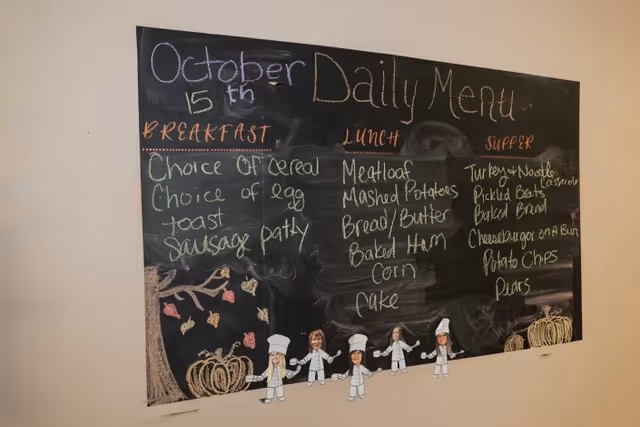 October
15th
Daily Menu
BREAKFAST
Choice of cereal
Choice of egg
toast
Sausage patty
LUNCH
Meatloaf
Mashed Potatoes
Bread/Butter
Baked Ham
Corn
Cake
SUPPER
Turkey & Noodle
Casserole
Pickled Beets
Baked Bread
Cheeseburger on A Bun
Potato Chips
Pears